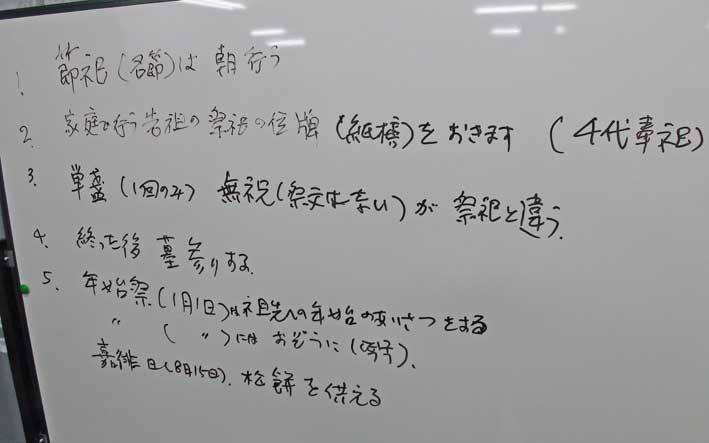 1. 節祀(名節)は 朝 行う
2. 家庭で行う先祖の祭祀の位牌(紙榜)をおきます (4代奉祀)
3. 単盞(1回のみ) 無祝(祭文はない)が 祭祀と違う.
4. 終った後 墓参りする.
5. 年始祭(1月1日)は祖先への年始のあいさつをする
〃 (〃)には おぞうに().
嘉俳日(8月15日). 松餅を供える